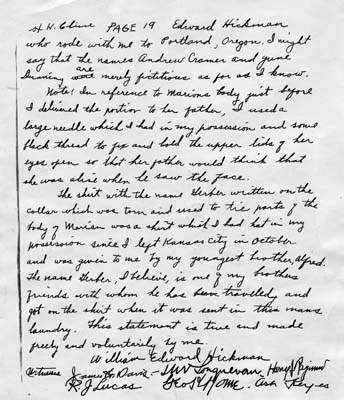 H. H. Cline PAGE 19 Edward Hickman
who rode with me to Portland, Oregon. I might
say that the names Andrew Cramer and June
Dunning are merely fictitious as far as I know.
Note: In reference to Marions body just before
I delivered the portion to her father, I used a
large needle which I had in my possession and some
black thread to fix and hold the upper lids of her
eyes open so that her father would think that
she was alive when he saw the face.
The shirt with the name Gerber written on the
collar which was torn and used to tie parts of the
body of Marion was a shirt which I had had in my
possession since I left Kansas City in October
and was given to me by my youngest brother, Alfred.
The name Gerber, I believe, is one of my brothers
friends with whom he has been travelled, and
got on the shirt when it was sent in this mans
laundry. This statement is true and made
freely and voluntarily by me.
William Edward Hickman
Witnesses James Davis Longuevan Harry
R. J. Lucas Geo. Home